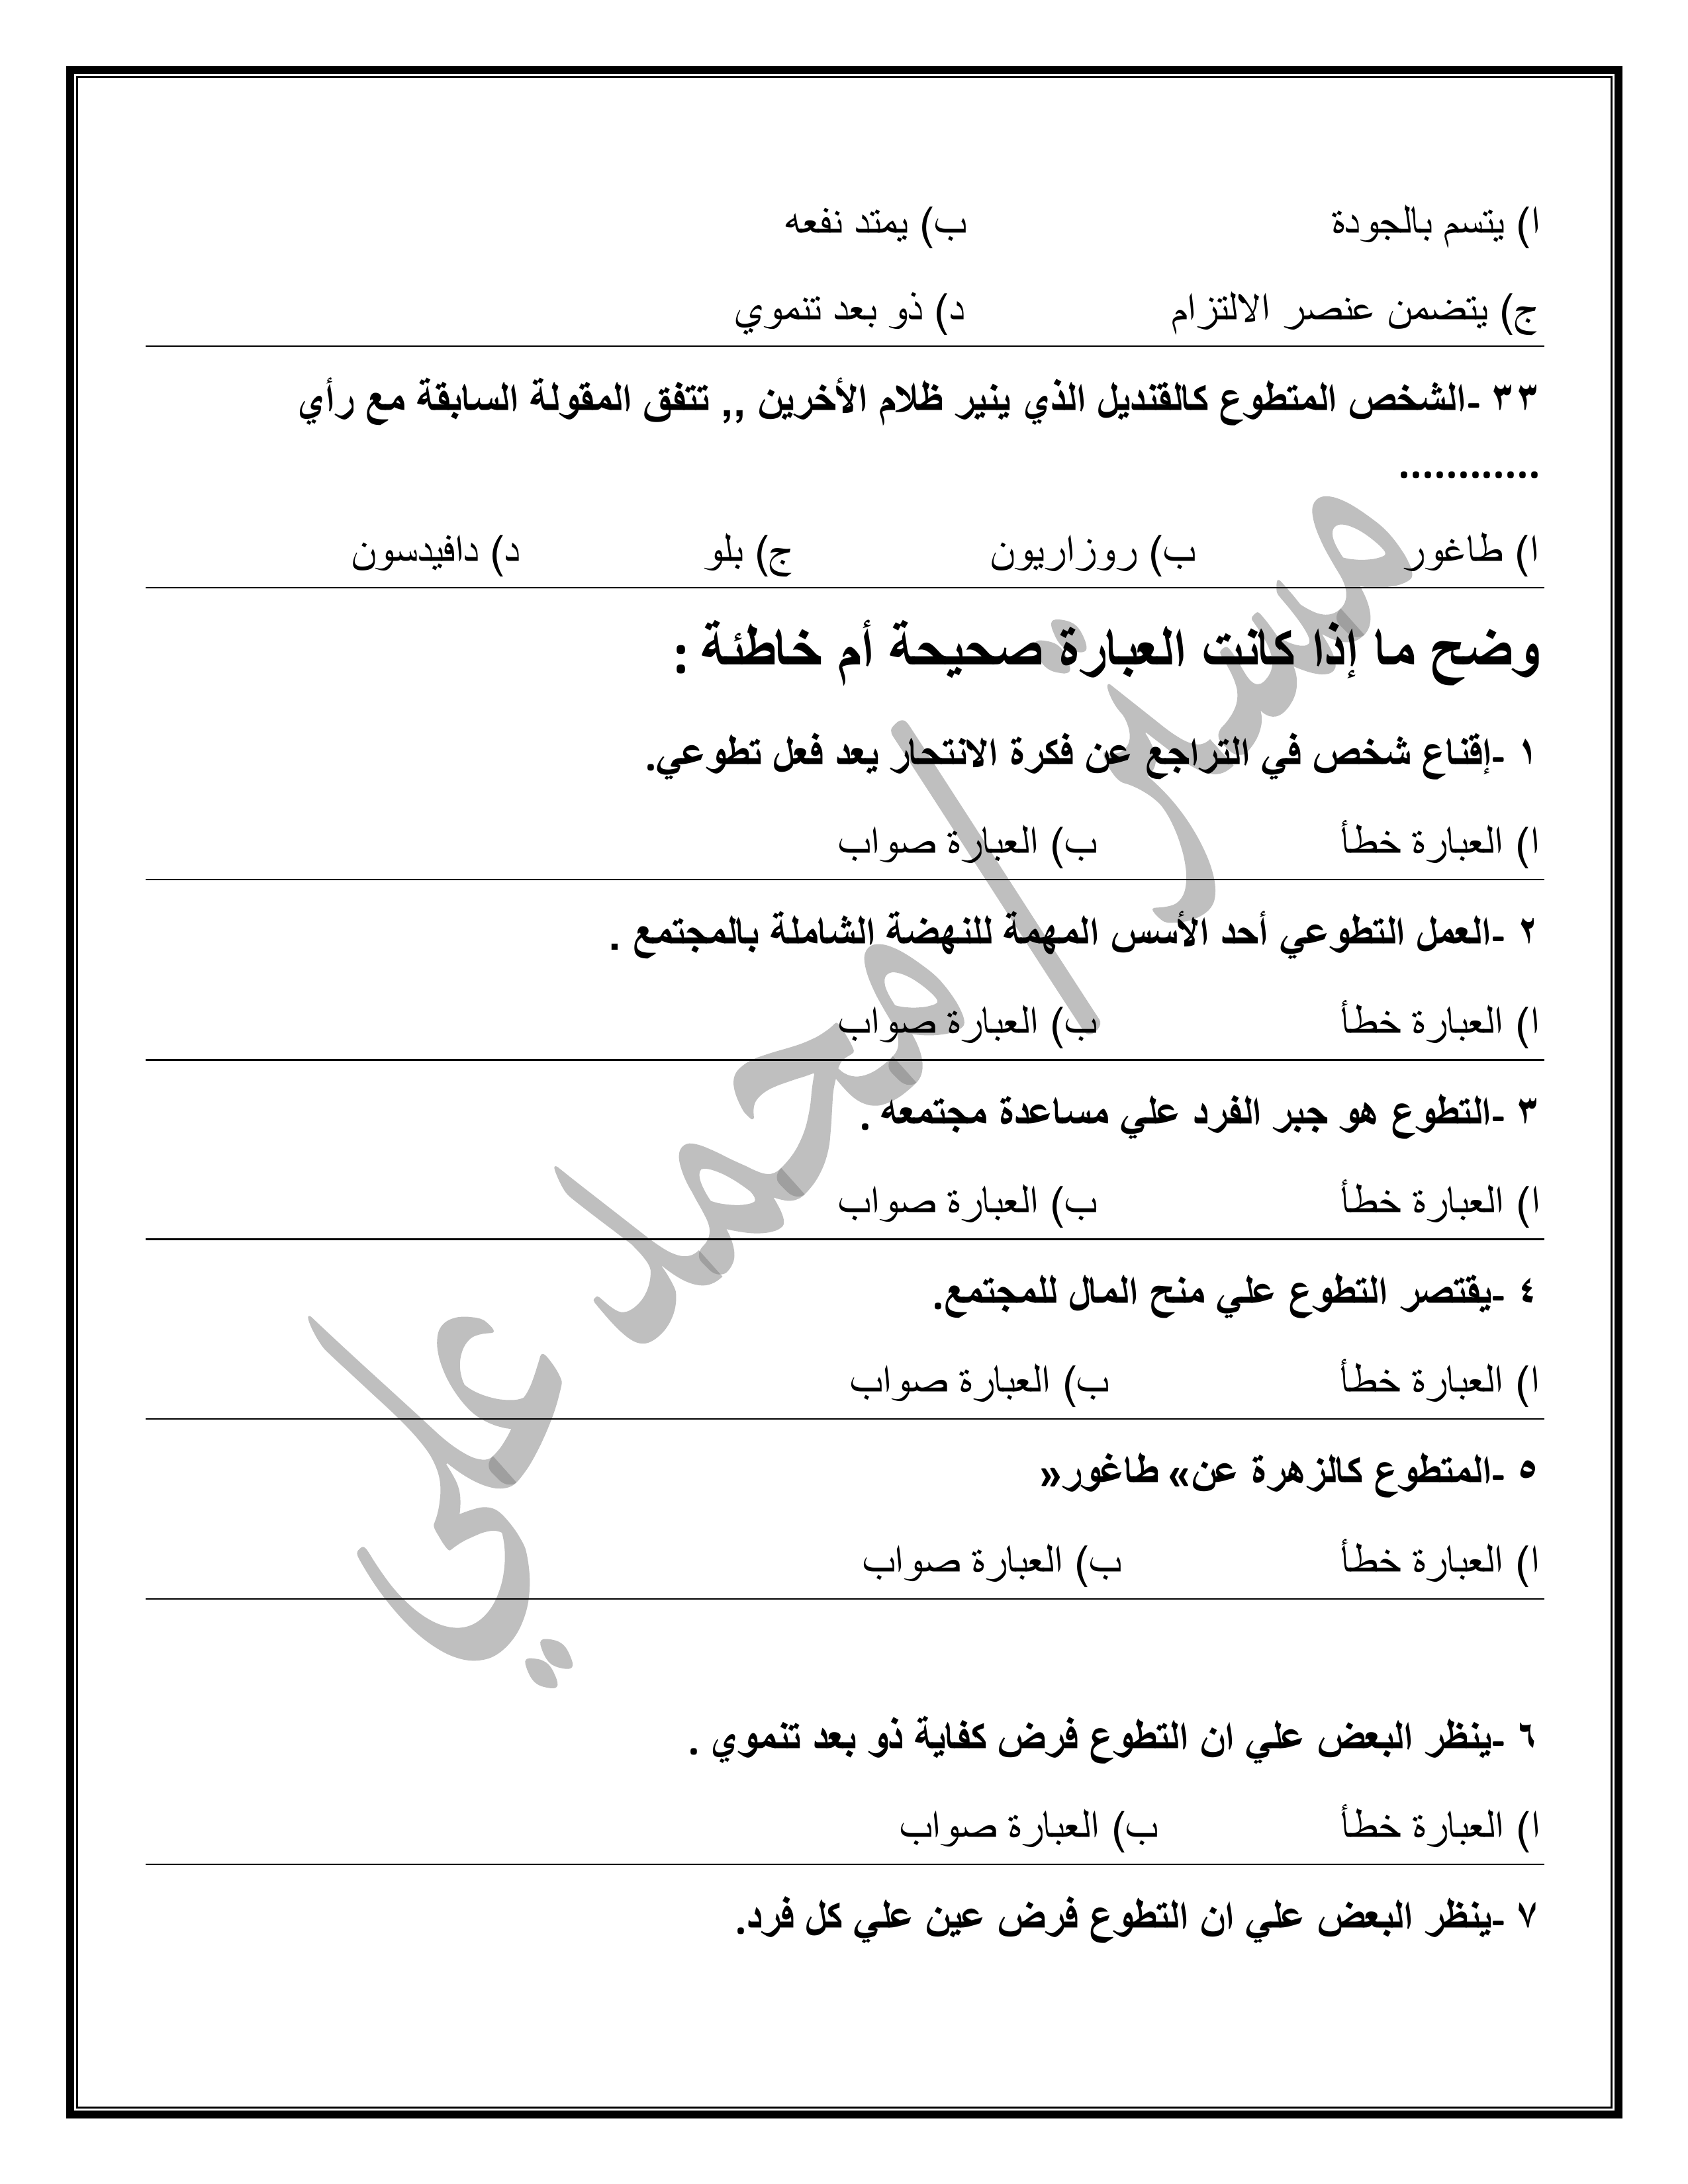 ا) يتسم بالجودة ب) يمتد نفعه
ج) يتضمن عنصر الالتزام د) ذو بعد تنموي
٣٣ -الشخص المتطوع كالقنديل الذي ينير ظلام الأخرين ,, تتفق المقولة السابقة مع رأي
............
ا) طاغور ب) روزاريون ج) بلو د) دافيدسون
وضح ما إذا كانت العبارة صحيحة أم خاطئة :
١ -إقناع شخص في التراجع عن فكرة الانتحار يعد فعل تطوعي.
ا) العبارة خطأ ب) العبارة صواب
٢ -العمل التطوعي أحد الأسس المهمة للنهضة الشاملة بالمجتمع .
ا) العبارة خطأ ب) العبارة صواب
٣ -التطوع هو جبر الفرد علي مساعدة مجتمعه .
ا) العبارة خطأ ب) العبارة صواب
٤ -يقتصر التطوع علي منح المال للمجتمع.
ا) العبارة خطأ ب) العبارة صواب
٥ -المتطوع كالزهرة عن» طاغور«
ا) العبارة خطأ ب) العبارة صواب
٦ -ينظر البعض علي ان التطوع فرض كفاية ذو بعد تنموي .
ا) العبارة خطأ ب) العبارة صواب
٧ -ينظر البعض علي ان التطوع فرض عين علي كل فرد.
مستر/محمد علي